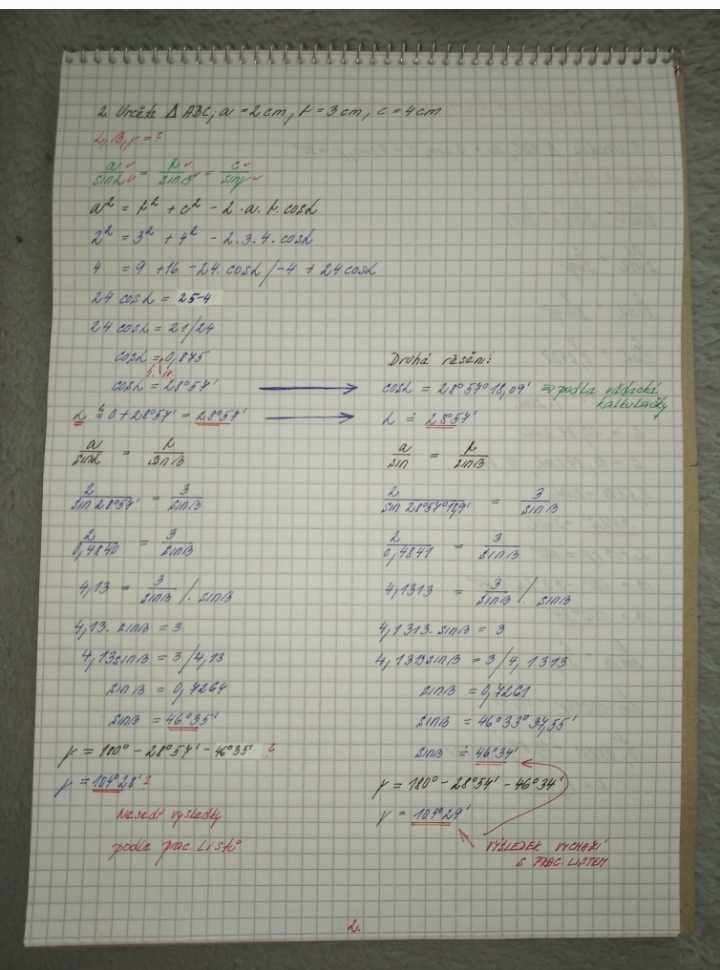 2. Určete △ ABC, a = 2 cm, b = 3 cm, c = 4 cm
α, β, γ = ?
a/sin α = b/sin β = c/sin γ
a² = b² + c² - 2 · a · b · cos α
2² = 3² + 4² - 2 · 3 · 4 · cos α
4 = 9 + 16 - 24 · cos α / -4 + 24 cos α
24 cos α = 25 - 4
24 cos α = 21 / 24
cos α = 0,875
cos α = 28°57'
α ≐ 0 + 28°57' = 28°57'
a/sin α = b/sin β
2/sin 28°57' = 3/sin β
2/0,4840 = 3/sin β
4,13 = 3/sin β / · sin β
4,13 · sin β = 3
4,13 sin β = 3 / 4,13
sin β = 0,7264
sin β = 46°35'
γ = 180° - 28°57' - 46°35' ?
γ = 104°28' ?
Nesedí výsledky
podle prac. listů
Druhá řešení:
cos α = 28°57°18,09' ⇒ podla
kalkulačky
α ≐ 28°57'
a/sin = b/sin β
2/sin 28°57° = 3/sin β
2/0,4841 = 3/sin β
4,1313 = 3/sin β / · sin β
4,1313 · sin β = 3
4,1313 sin β = 3 / 4,1313
sin β = 0,7261
sin β = 46°33°37,55'
sin β ≐ 46°34'
γ = 180° - 28°57' - 46°34'
γ = 104°29'
VÝSLEDEK VYCHÁZÍ
S PRAC. LISTEM
2.